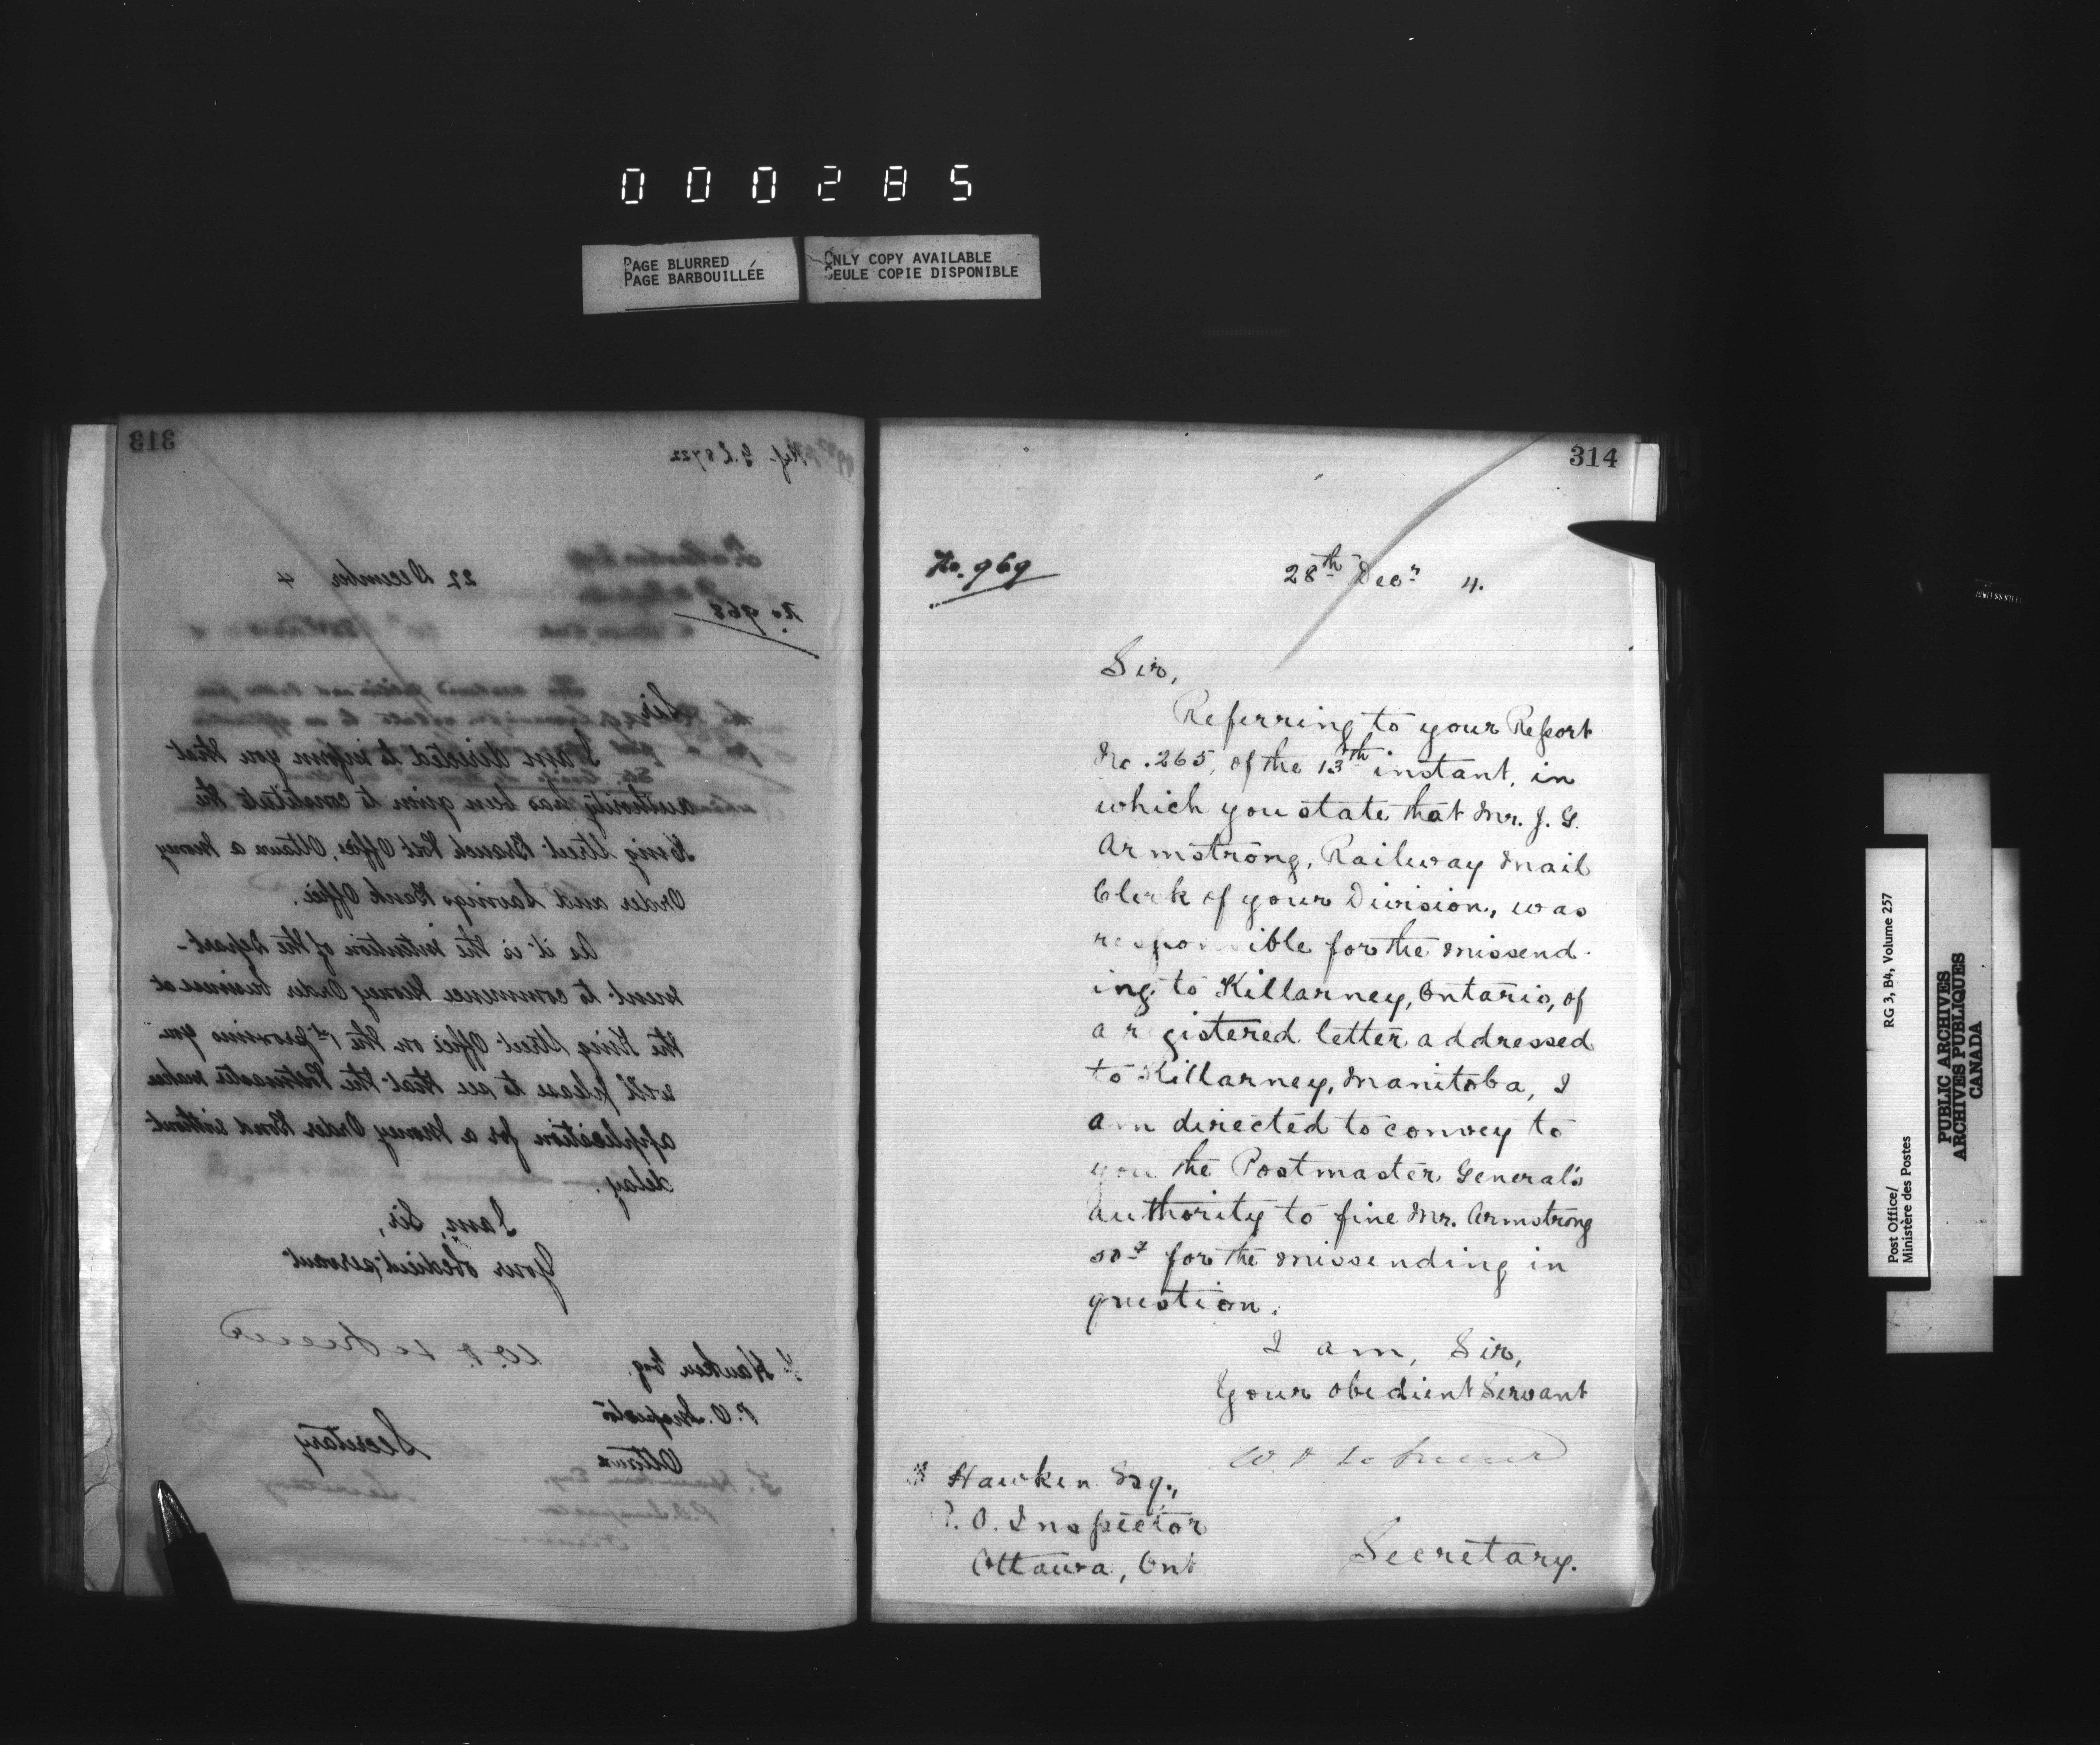 000285
PAGE BLURRED
PAGE BARBOUILLÉE
ONLY COPY AVAILABLE
SEULE COPIE DISPONIBLE
313
Ref. G.L 8722
22 December 4
No 968
Sir
I am directed to inform you that
authority has been given to constitute the
King Street Branch Post Office, Ottawa a Money
Order and Savings Bank Office.
As it is the intention of the Depart-
ment to commence Money Order business at
the King Street Office on the 1st proximo you
will please to see that the Postmaster makes
application for a Money Order Bond without
delay.
I am, Sir,
Your obedient servant
W. D. LeSueur
Hawken Esq.
P.O. Inspector
Ottawa
Secretary
314
No. 969
28th Decr 4.
Sir,
Referring to your Report
No. 265, of the 13th instant, in
which you state that Mr. J. G.
Armstrong, Railway Mail
Clerk of your Division, was
responsible for the missend-
ing to Killarney, Ontario, of
a registered letter addressed
to Killarney, Manitoba, I
am directed to convey to
you the Postmaster General's
authority to fine Mr. Armstrong
for the missending in
question.
I am, Sir,
Your obedient Servant
W. D. LeSueur
Hawken Esq.,
P. O. Inspector
Ottawa, Ont
Secretary.
Post Office/
Ministère des Postes
RG 3, B4, Volume 257
PUBLIC ARCHIVES
ARCHIVES PUBLIQUES
CANADA